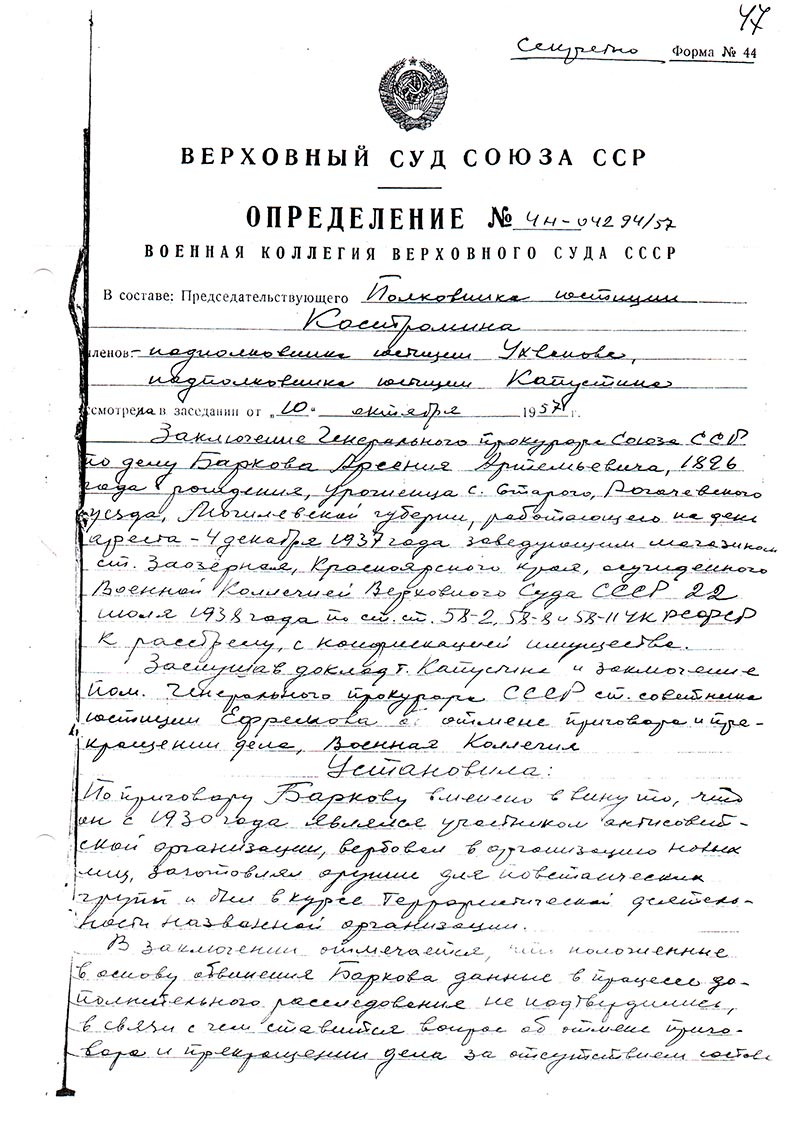 47
Секретно Форма № 44
ВЕРХОВНЫЙ СУД СОЮЗА ССР
ОПРЕДЕЛЕНИЕ № 4н-04294/57
ВОЕННАЯ КОЛЛЕГИЯ ВЕРХОВНОГО СУДА СССР
В составе: Председательствующего Полковника юстиции
Костромина
членов- подполковника юстиции
подполковника юстиции Капустина
ссмотрела в заседании от „10" октября 1957 г.
Заключение Генерального прокурора Союза ССР
по делу Баркова Арсения Артемьевича, 1896
года рождения, уроженца с. Старого, Рогачевского
уезда, Могилевской губернии, работающего на день
ареста - 4 декабря 1937 года заведующим магазином
ст. Заозёрная, Красноярского края, осужденного
Военной Коллегией Верховного Суда СССР 22
июля 1938 года по ст. ст. 58-2, 58-8 и 58-11 УК РСФСР
к расстрелу, с конфискацией имущества.
Заслушав доклад т. Капустина и заключение
пом. Генерального прокурора СССР ст. советника
юстиции Ефремова об отмене приговора и пре-
кращении дела, Военная Коллегия
Установила:
По приговору Баркову вменено в вину то, что
он с 1930 года являлся участником антисовет-
ской организации, вербовал в организацию новых
лиц, заготовлял оружие для повстанческих
групп и был в курсе террористической деятель-
ности названной организации.
В заключении отмечается, что положенные
в основу обвинения Баркова данные в процессе до-
полнительного расследования не подтвердились,
в связи с чем ставится вопрос об отмене приго-
вора и прекращении дела за отсутствием состава